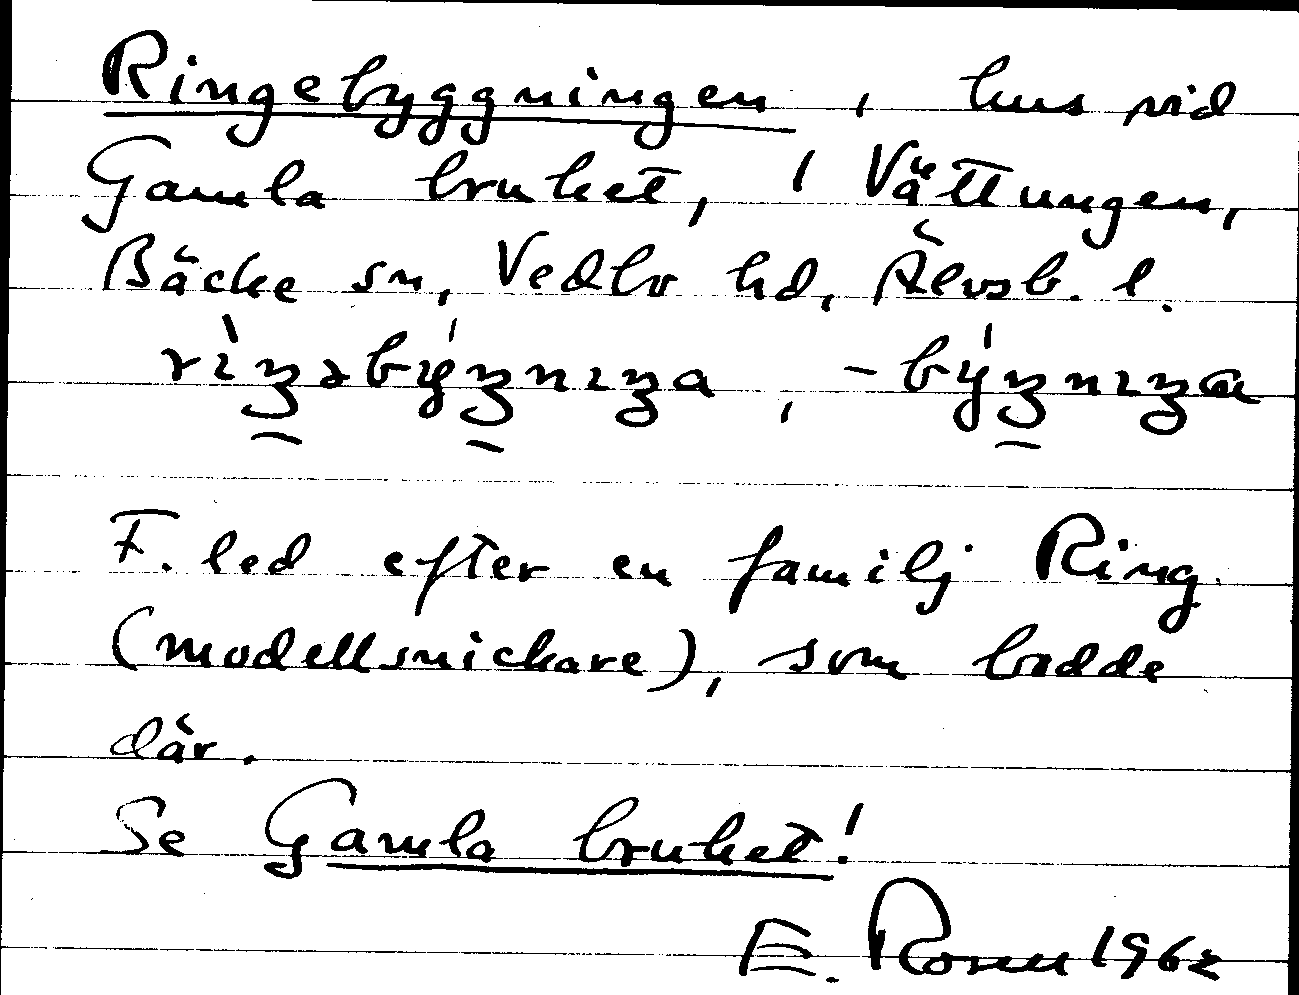 Ringebyggningen, hus vid
Gamla bruket, i Vättungen,
Bäcke sn, Vedbo hd, Älvsb. l.
F. led efter en familj Ring
(modellsnickare), som bodde
där.
Se Gamla bruket!
E. 1962